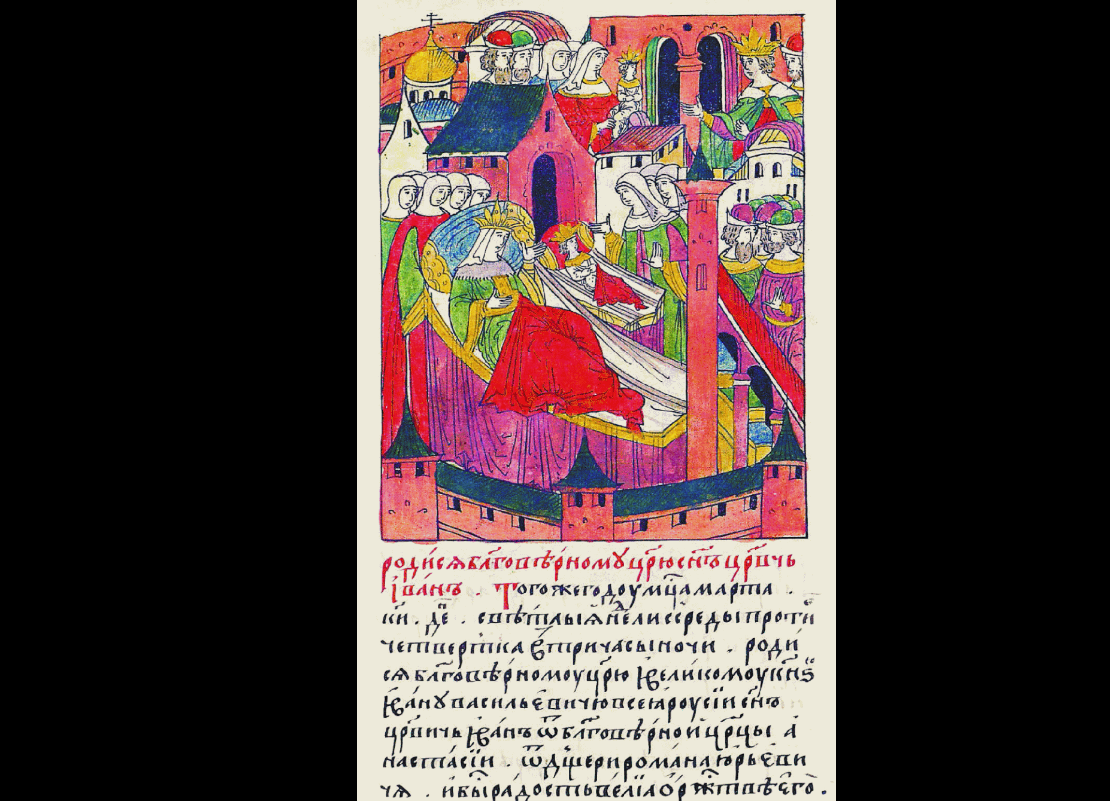 родисѧ блговѣрномꙋ црю снъ црвчь
Іванъ . Тогоже году мца марта .
ки . де . свѣтлыѧ нели ссреды проти
четвертка в трı часы ночи . роди
сѧ блговѣрномоу црю великомоу кнѕ
Ивану васильевичю всеѧ роусїи снъ
црвичь Иванъ ѿ блговѣрнои црцы а
настасїи . ѿ дщери романа юрьеви
чѧ . и бы радость велїа о ржтвѣ его .